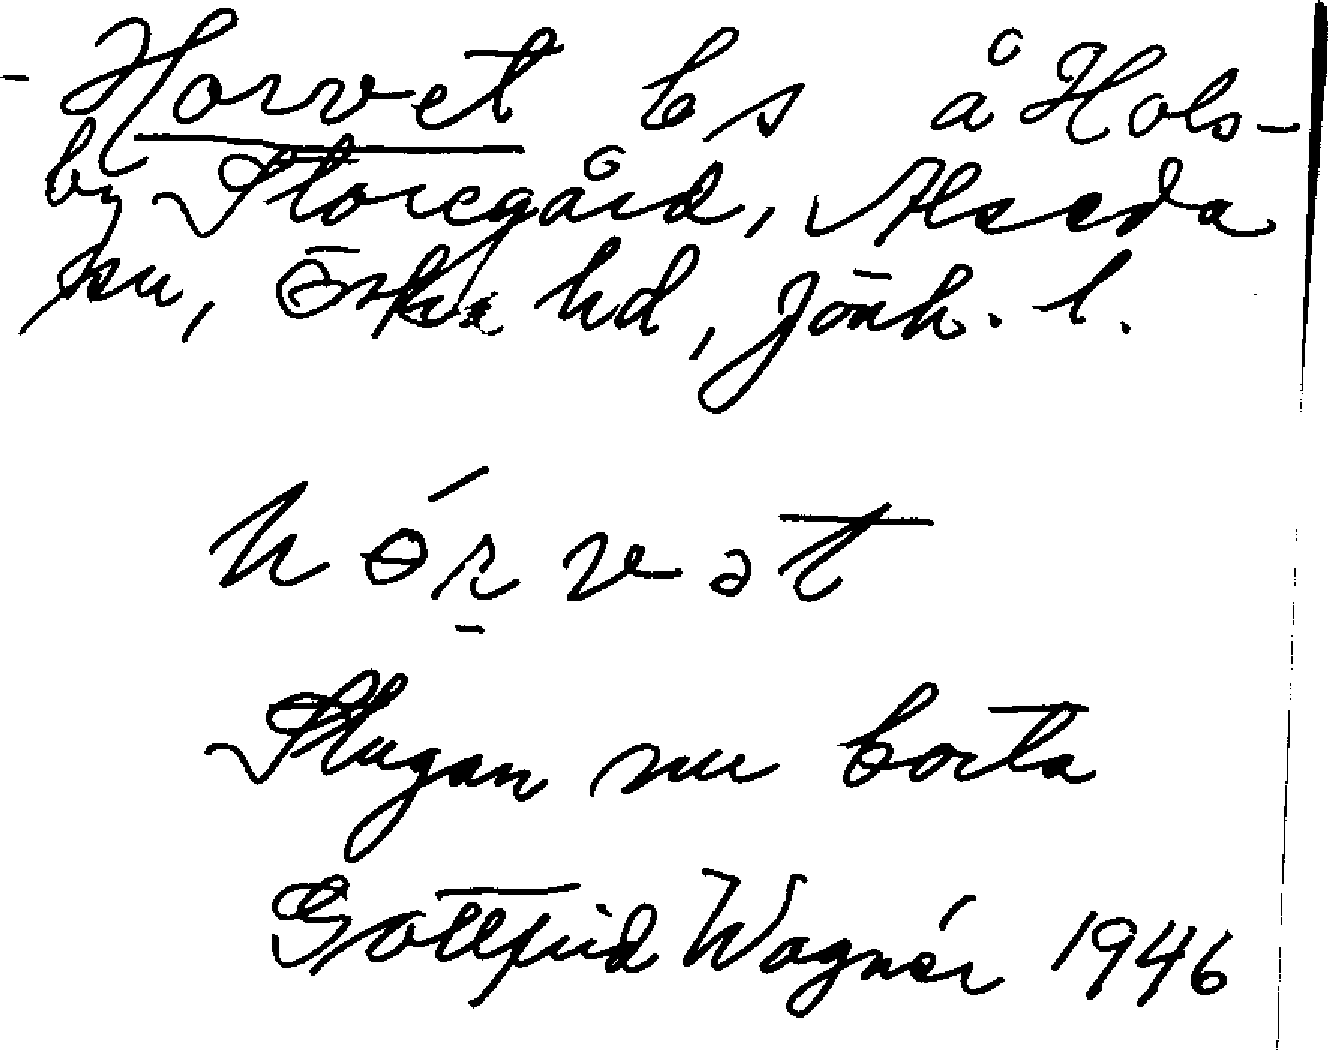 Horvet bs å Hols-
by Storegård, Alseda
sn, Östra hd, Jönk. l.
hɵ́r̠vət
Stugan nu borta
Gottfrid Wagnér 1946